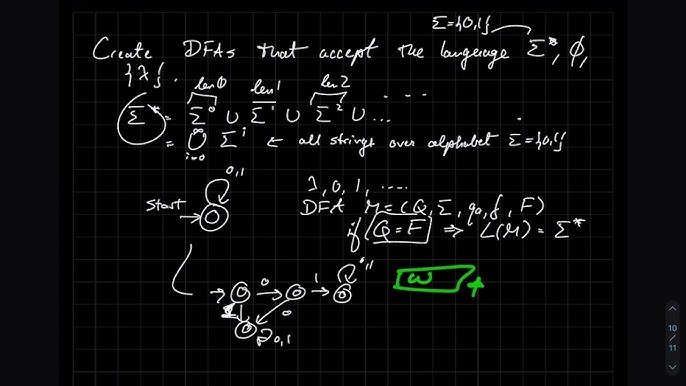 Σ={0,1}
Create DFAs that accept the language Σ*, ϕ,
{λ}.
len 0 len 1 len 2 ....
Σ* = Σ⁰ ∪ Σ¹ ∪ Σ² ∪ ...
= ∞∪i=0 Σⁱ ← all strings over alphabet Σ={0,1}
0,1
start
λ, 0, 1, ....
DFA M=(Q, Σ, q₀, δ, F)
if Q=F ⇒ L(M) = Σ*
0 1 0,1
1 0
0,1
ω
10
11